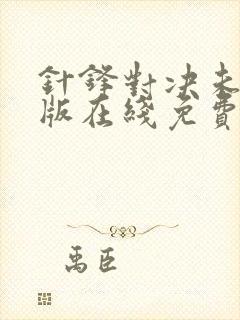 針鋒對決未
版在綫免費
禹臣